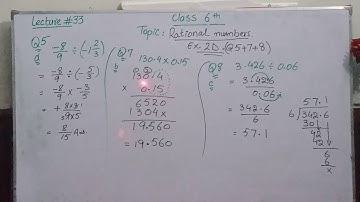 Lecture #33
Class 6th
Topic: Rational numbers
Ex. 2D (Q5+7+8)
Q5
d
-8/9 ÷ (-1 2/3)
= -8/9 ÷ (-5/3)
= -8/9 × -3/5
= + 8×3/9×5
= 8/15 Ans.
Q7
b
130.4 × 0.15
130.4
× 0.15
6520
1304×
19.560
= 19.560
Q8
c
3.426 ÷ 0.06
= 3.426/0.06
= 342.6/6
= 57.1
57.1
6 342.6
301
42
42
6
6
×